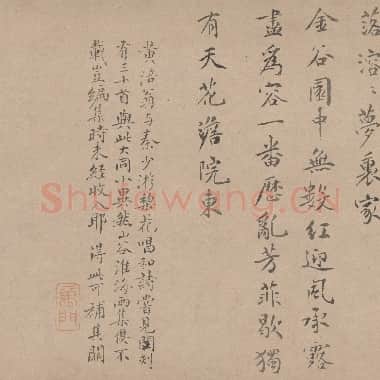 落溶〻夢裏家
金谷園中無數紅迎風承露
盡爲容一番歷亂芳菲歇獨
有天花院東
黄涪翁与秦少游梨花唱和詩嘗見閣刻
有三十首與此大同小異然山谷淮海兩集俱不
載豈編集時未經收耶 得此可補其闕
Shufawang.CN